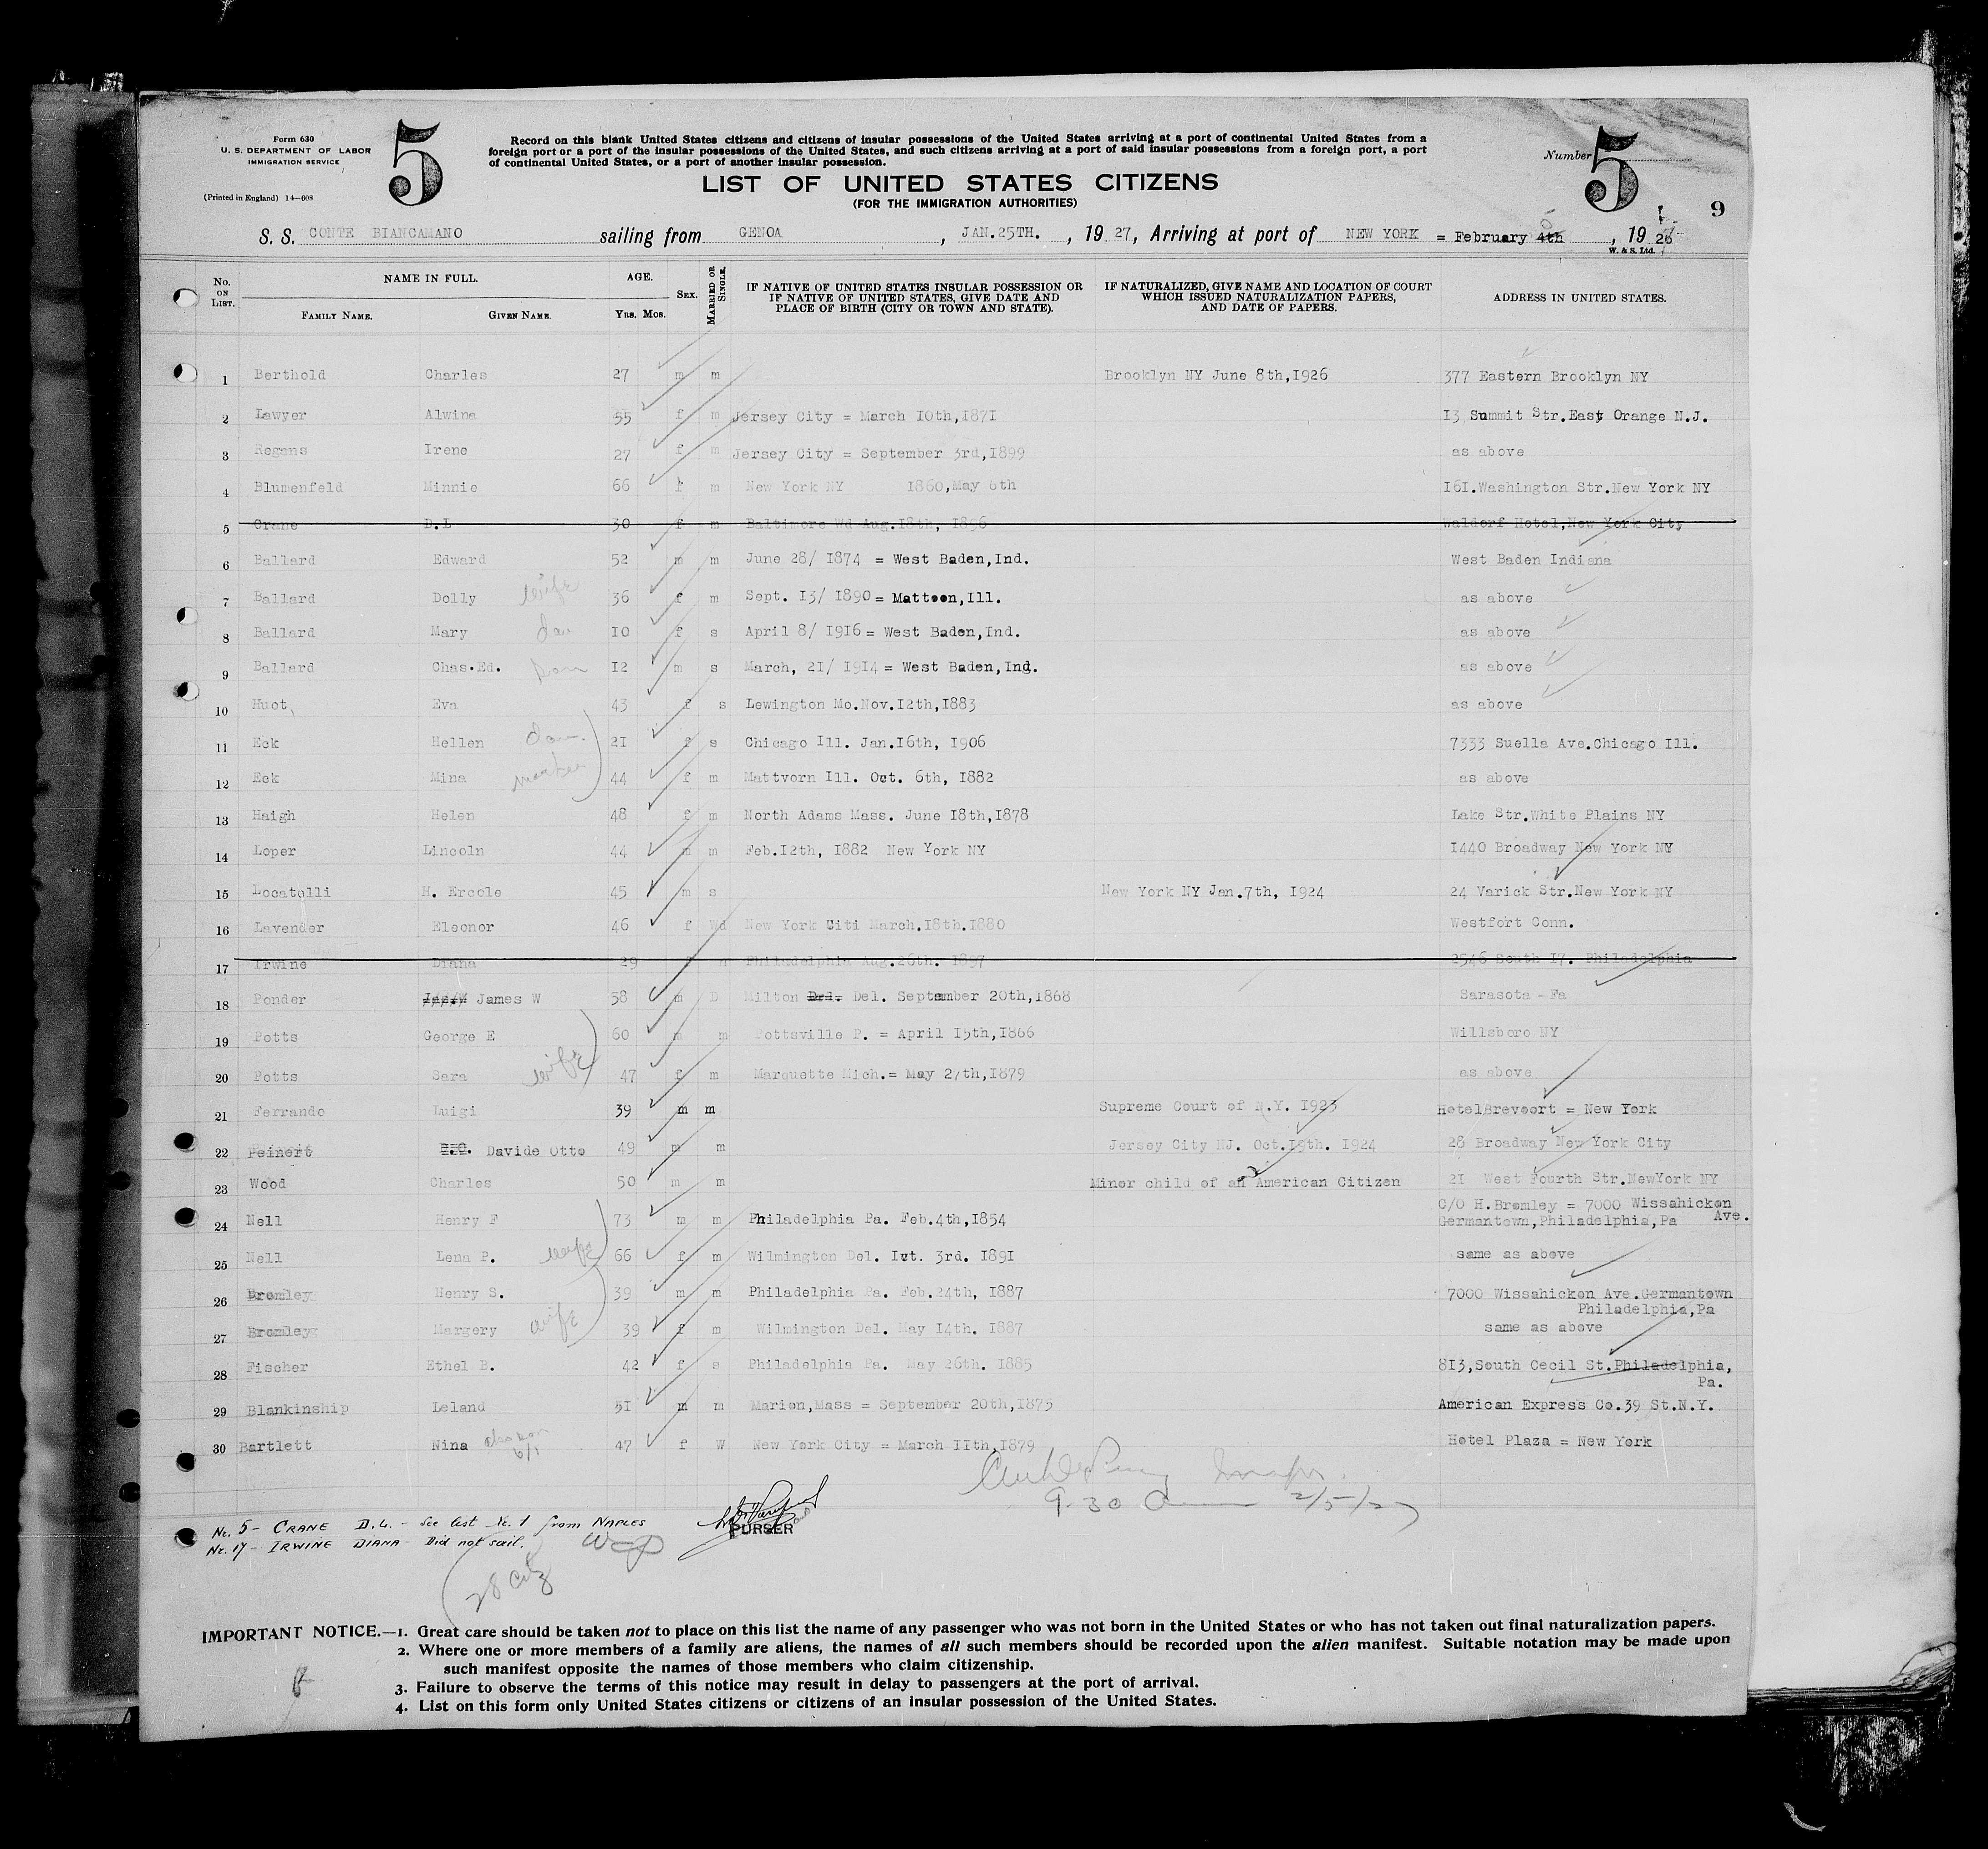 Form 630
U. S. DEPARTMENT OF LABOR
IMMIGRATION SERVICE
(Printed in England) 14—608
5
Record on this blank United States citizens and citizens of insular possessions of the United States arriving at a port of continental United States from a
foreign port or a port of the insular possessions of the United States, and such citizens arriving at a port of said insular possessions from a foreign port, a port
of continental United States, or a port of another insular possession.
LIST OF UNITED STATES CITIZENS
(FOR THE IMMIGRATION AUTHORITIES)
Number 5
9
S. S. CONTE BIANCAMANO sailing from GENOA, JAN.25TH., 19 27, Arriving at port of NEW YORK = February 4th 5, 19 26 7
W. & S. Ltd.
No. ON LIST. NAME IN FULL. AGE. SEX. MARRIED OR SINGLE. IF NATIVE OF UNITED STATES INSULAR POSSESSION OR IF NATIVE OF UNITED STATES, GIVE DATE AND PLACE OF BIRTH (CITY OR TOWN AND STATE). IF NATURALIZED, GIVE NAME AND LOCATION OF COURT WHICH ISSUED NATURALIZATION PAPERS, AND DATE OF PAPERS. ADDRESS IN UNITED STATES.
FAMILY NAME. GIVEN NAME. Yrs. Mos.
1 Berthold Charles 27 m m Brooklyn NY June 8th,1926 377 Eastern Brooklyn NY
2 Lawyer Alwina 55 f m Jersey City = March 10th,1871 13 Summit Str.East Orange N.J.
3 Regans Irene 27 f m Jersey City = September 3rd,1899 as above
4 Blumenfeld Minnie 66 f m New York NY 1860,May 6th 161.Washington Str.New York NY
5 Crane D.L 30 f m Baltimore Wd Aug.18th, 1896 Waldorf Hotel,New York City
6 Ballard Edward 52 m m June 28/ 1874 = West Baden,Ind. West Baden Indiana
7 Ballard Dolly wife 36 f m Sept. 13/ 1890 = Mattoon,Ill. as above
8 Ballard Mary dau 10 f s April 8/ 1916 = West Baden,Ind. as above
9 Ballard Chas.Ed. 12 m s March, 21/ 1914 = West Baden,Ind. as above
10 Huot, Eva 43 f s Lewington Mo.Nov.12th,1883 as above
11 Eck Hellen dau. 21 f s Chicago Ill. Jan.16th, 1906 7333 Suella Ave.Chicago Ill.
12 Eck Mina mother 44 f m Mattvorn Ill. Oct. 6th, 1882 as above
13 Haigh Helen 48 f m North Adams Mass. June 18th,1878 Lake Str.White Plains NY
14 Loper Lincoln 44 m m Feb.12th, 1882 New York NY 1440 Broadway New York NY
15 Locatelli H. Ercole 45 m s New York NY Jan.7th, 1924 24 Varick Str.New York NY
16 Lavender Eleonor 46 f Wd New York Citi March.18th.1880 Westfort Conn.
17 Irwine Diana 29 f m Philadelphia Aug.26th. 1897 2546 South 17. Philadelphia
18 Ponder James W 58 m D Milton Del. September 20th,1868 Sarasota - Fa
19 Potts George E 60 m m Pottsville P. = April 15th,1866 Willsboro NY
20 Potts Sara wife 47 f m Marquette Mich.= May 27th,1879 as above
21 Ferrando Luigi 39 m m Supreme Court of N.Y. 1923 Hotel Breveort = New York
22 Peinert Davide Otto 49 m m Jersey City NJ. Oct.19th. 1924 26 Broadway New York City
23 Wood Charles 50 m m Minor child of an American Citizen 21 West Fourth Str.NewYork NY
24 Nell Henry F 73 m m Philadelphia Pa. Feb.4th,1854 C/O H.Bromley = 7000 Wissahickon
Germantown,Philadelphia,Pa Ave.
25 Nell Lena P. wife 66 f m Wilmington Del. 3rd. 1891 same as above
26 Bromley Henry S. 39 m m Philadelphia Pa. Feb.24th, 1887 7000 Wissahickon Ave.Germantown
Philadelphia,Pa
27 Bromley Margery wife 39 f m Wilmington Del. May 14th. 1887 same as above
28 Fischer Ethel B. 42 f s Philadelphia Pa. May 26th. 1885 813,South Cecil St.Philadelphia,
Pa.
29 Blankinship Leland 51 m m Marion,Mass = September 20th,1875 American Express Co.39 St.N.Y.
30 Bartlett Nina 47 f W New York City = March 11th,1879 Hotel Plaza = New York
9-30 2/5/27
PURSER
Nr. 5 - CRANE D.L. - See list Nr. 1 from NAPLES
Nr. 17 - IRWINE DIANA - Did not sail.
28 City
IMPORTANT NOTICE.—1. Great care should be taken not to place on this list the name of any passenger who was not born in the United States or who has not taken out final naturalization papers.
2. Where one or more members of a family are aliens, the names of all such members should be recorded upon the alien manifest. Suitable notation may be made upon
such manifest opposite the names of those members who claim citizenship.
3. Failure to observe the terms of this notice may result in delay to passengers at the port of arrival.
4. List on this form only United States citizens or citizens of an insular possession of the United States.